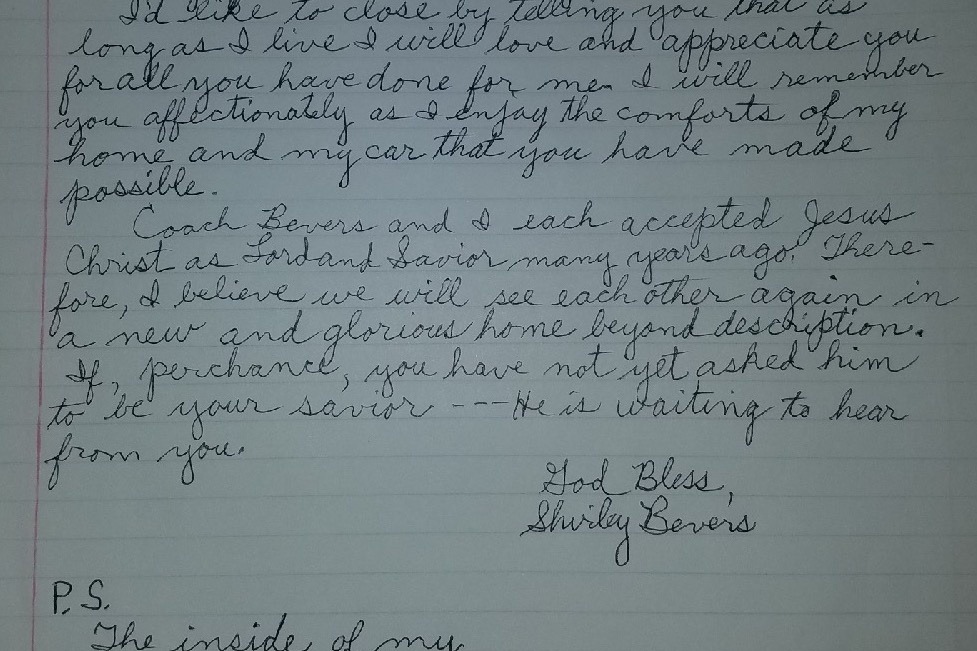 I'd like to close by telling you that as
long as I live I will love and appreciate you
for all you have done for me. I will remember
you affectionately as I enjoy the comforts of my
home and my car that you have made
possible.
Coach Bevers and I each accepted Jesus
Christ as Lord and Savior many years ago. There-
fore, I believe we will see each other again in
a new and glorious home beyond description.
If, perchance, you have not yet asked him
to be your savior --- He is waiting to hear
from you.
God Bless,
Shirley Bevers
P.S.
The inside of my